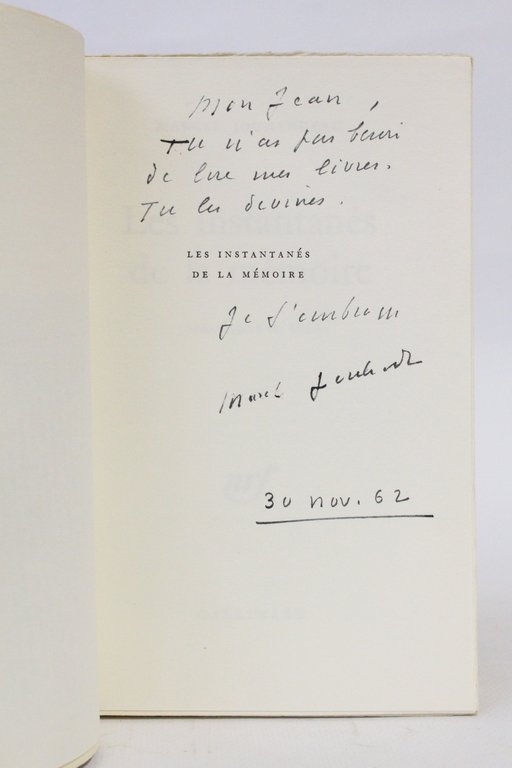 Mon Jean,
Tu n'as pas besoin
de lire mes livres.
Tu les devines.
LES INSTANTANÉS
DE LA MÉMOIRE
Je t'embrasse
Marcel Jouhandeau
30 nov. 62